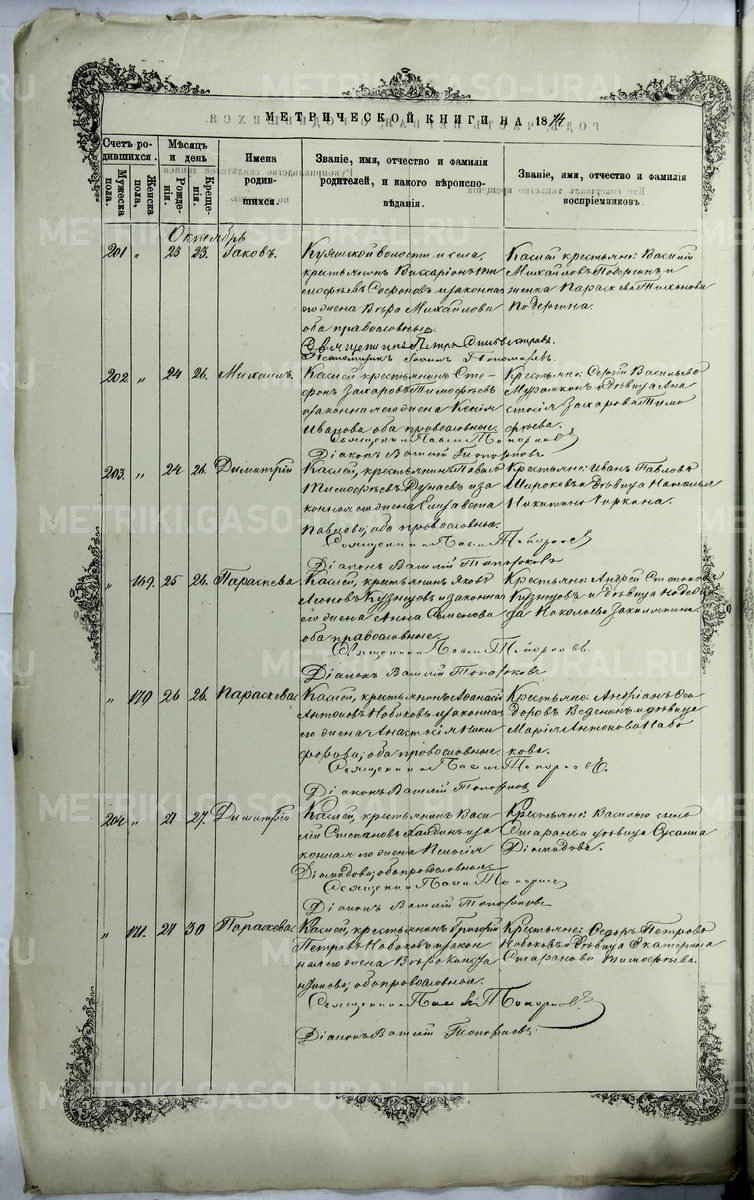 МЕТРИЧЕСКОЙ КНИГИ НА 1874
Счетъ ро-
дившихся.
Мужеска
пола.
Женска
пола.
Мѣсяцъ
и день
Рожде-
нія.
Креще-
нія.
Имена
родив-
шихся.
Званіе, имя, отчество и фамилія
родителей, и какого вѣроиспо-
вѣданія.
Званіе, имя, отчество и фамилія
воспріемниковъ.
Октябрь
201 " 23 23. Іаковъ.
волости и села,
крестьянинъ Виссаріонъ Ти
мофѣевъ Софоновъ и законная
его жена Вѣра Михайлова
оба православные.
Священникъ Петръ Дмитріевъ
Іоаннъ Пономаревъ.
крестьяне: Василій
Михайловъ Подергинъ и
женка Параскева Тихонова
Подергина.
202 " 24 26. Михаилъ.
Каслей крестьянинъ Сте-
фанъ Захаровъ Тимофѣевъ
и законная его жена Ксенія
Иванова оба православные.
Священникъ Павелъ Топорковъ
Діаконъ Василій Топорковъ
Крестьяне: Сергій Васильевъ
и дѣвица Ана
стасія Захарова Тимо
фѣева.
203. " 24 26. Димитрій
Каслей, крестьянинъ Павелъ
Тимофѣевъ Дунаевъ и за
конная его жена Елисавета
Павлова; оба православные.
Священникъ Павелъ Топорковъ
Діаконъ Василій Топорковъ
Крестьяне: Иванъ Павловъ
Широковъ и дѣвица Наталья
Никитина
" 169. 25 26. Параскева.
Каслей, крестьянинъ Яковъ
Леоновъ Кузнецовъ и законная
его жена Анна Семенова
оба православные.
Священникъ Павелъ Топорковъ.
Діаконъ Василій Топорковъ
Крестьяне: Андрей Степановъ
Кузнецовъ и дѣвица Надеж
да Николаева
" 170 26 26. Параскева
Каслей, крестьянинъ Аѳанасій
Антоновъ Набоковъ и законная
его жена Анастасія Ники
форова; оба православные.
Священникъ Павелъ Топорковъ.
Діаконъ Василій Топорковъ
Крестьяне: Андріанъ Ѳео
доровъ и дѣвица
Марія Антонова Набо
кова.
204. " 21 27. Димитрій
Каслей, крестьянинъ Васи
лій Степановъ и за
конная его жена
Діомидова; оба православные.
Священникъ Павелъ Топорковъ
Діаконъ Василій Топорковъ
Крестьяне:
и дѣвица
Діомидова.
" 171. 27 30 Параскева
Каслей, крестьянинъ Григорій
Петровъ Набоковъ и закон
ная его жена Вѣра
оба православные.
Священникъ Павелъ Топорковъ.
Діаконъ Василій Топорковъ.
Крестьяне: Ѳедоръ Петровъ
Набоковъ и дѣвица Екатерина
Тимофѣева.
METRIKI.GASO-URAL.RU